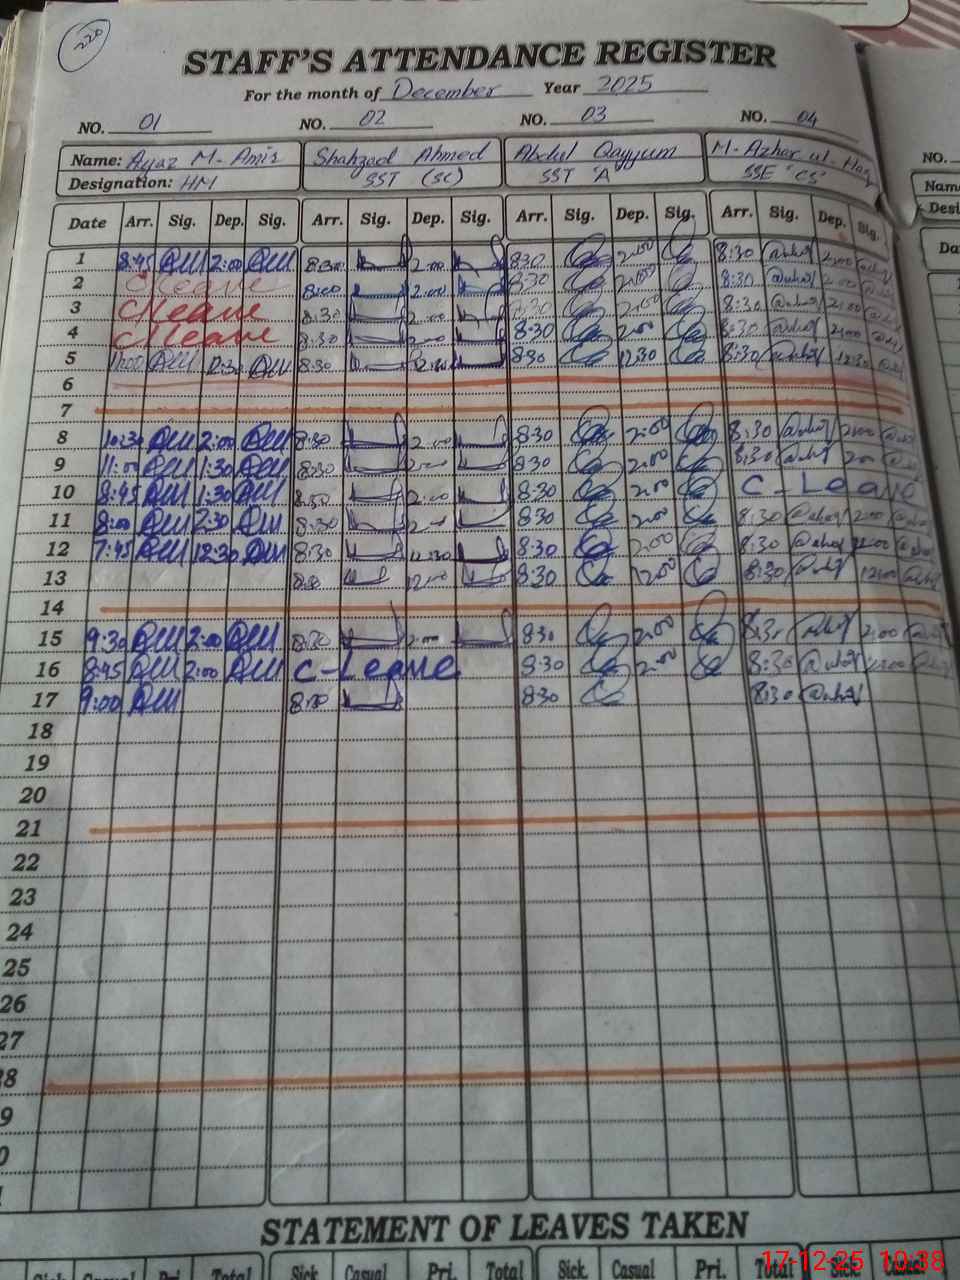 220
STAFF'S ATTENDANCE REGISTER
For the month of December Year 2025
NO. 01 NO. 02 NO. 03 NO. 04 NO.
Name: Ayaz M- Amir Shahzad Ahmed Abdul Qayyum M- Azhar ul- Haq Name
Designation: HM SST (SC) SST 'A' SSE 'CS' Desi
Date Arr. Sig. Dep. Sig. Arr. Sig. Dep. Sig. Arr. Sig. Dep. Sig. Arr. Sig. Dep. Sig. Da
1 8:45 2:00 8:30 2:00 8:30 2:00 8:30 2:00
2 C leave 8:00 2:00 8:30 2:00 8:30 2:00
3 C leave 8:30 2:00 8:30 2:00 8:30 2:00
4 C leave 8:30 2:00 8:30 2:00 8:30 2:00
5 11:00 12:30 8:30 12:30 8:30 12:30 8:30 12:30
6
7
8 10:30 2:00 8:30 2:00 8:30 2:00 8:30 2:00
9 11:00 1:30 8:30 2:00 8:30 2:00 8:30 2:00
10 8:45 1:30 2:00 8:30 2:00 C - Leave
11 8:00 2:30 8:30 2:00 8:30 2:00 8:30 2:00
12 7:45 12:30 8:30 12:30 8:30 2:00 8:30
13 12:00 8:30 12:00 8:30 12:00
14
15 9:30 2:00 8:30 2:00 8:30 2:00 8:30 2:00
16 8:45 2:00 C-Leave 8:30 2:00 8:30 2:00
17 9:00 8:30 8:30
18
19
20
21
22
23
24
25
26
27
8
9
0
STATEMENT OF LEAVES TAKEN
Sick Casual Pri. Total Sick Casual Pri. Total Sick Casual Pri. Total Sick Casual
17-12-25 10:38